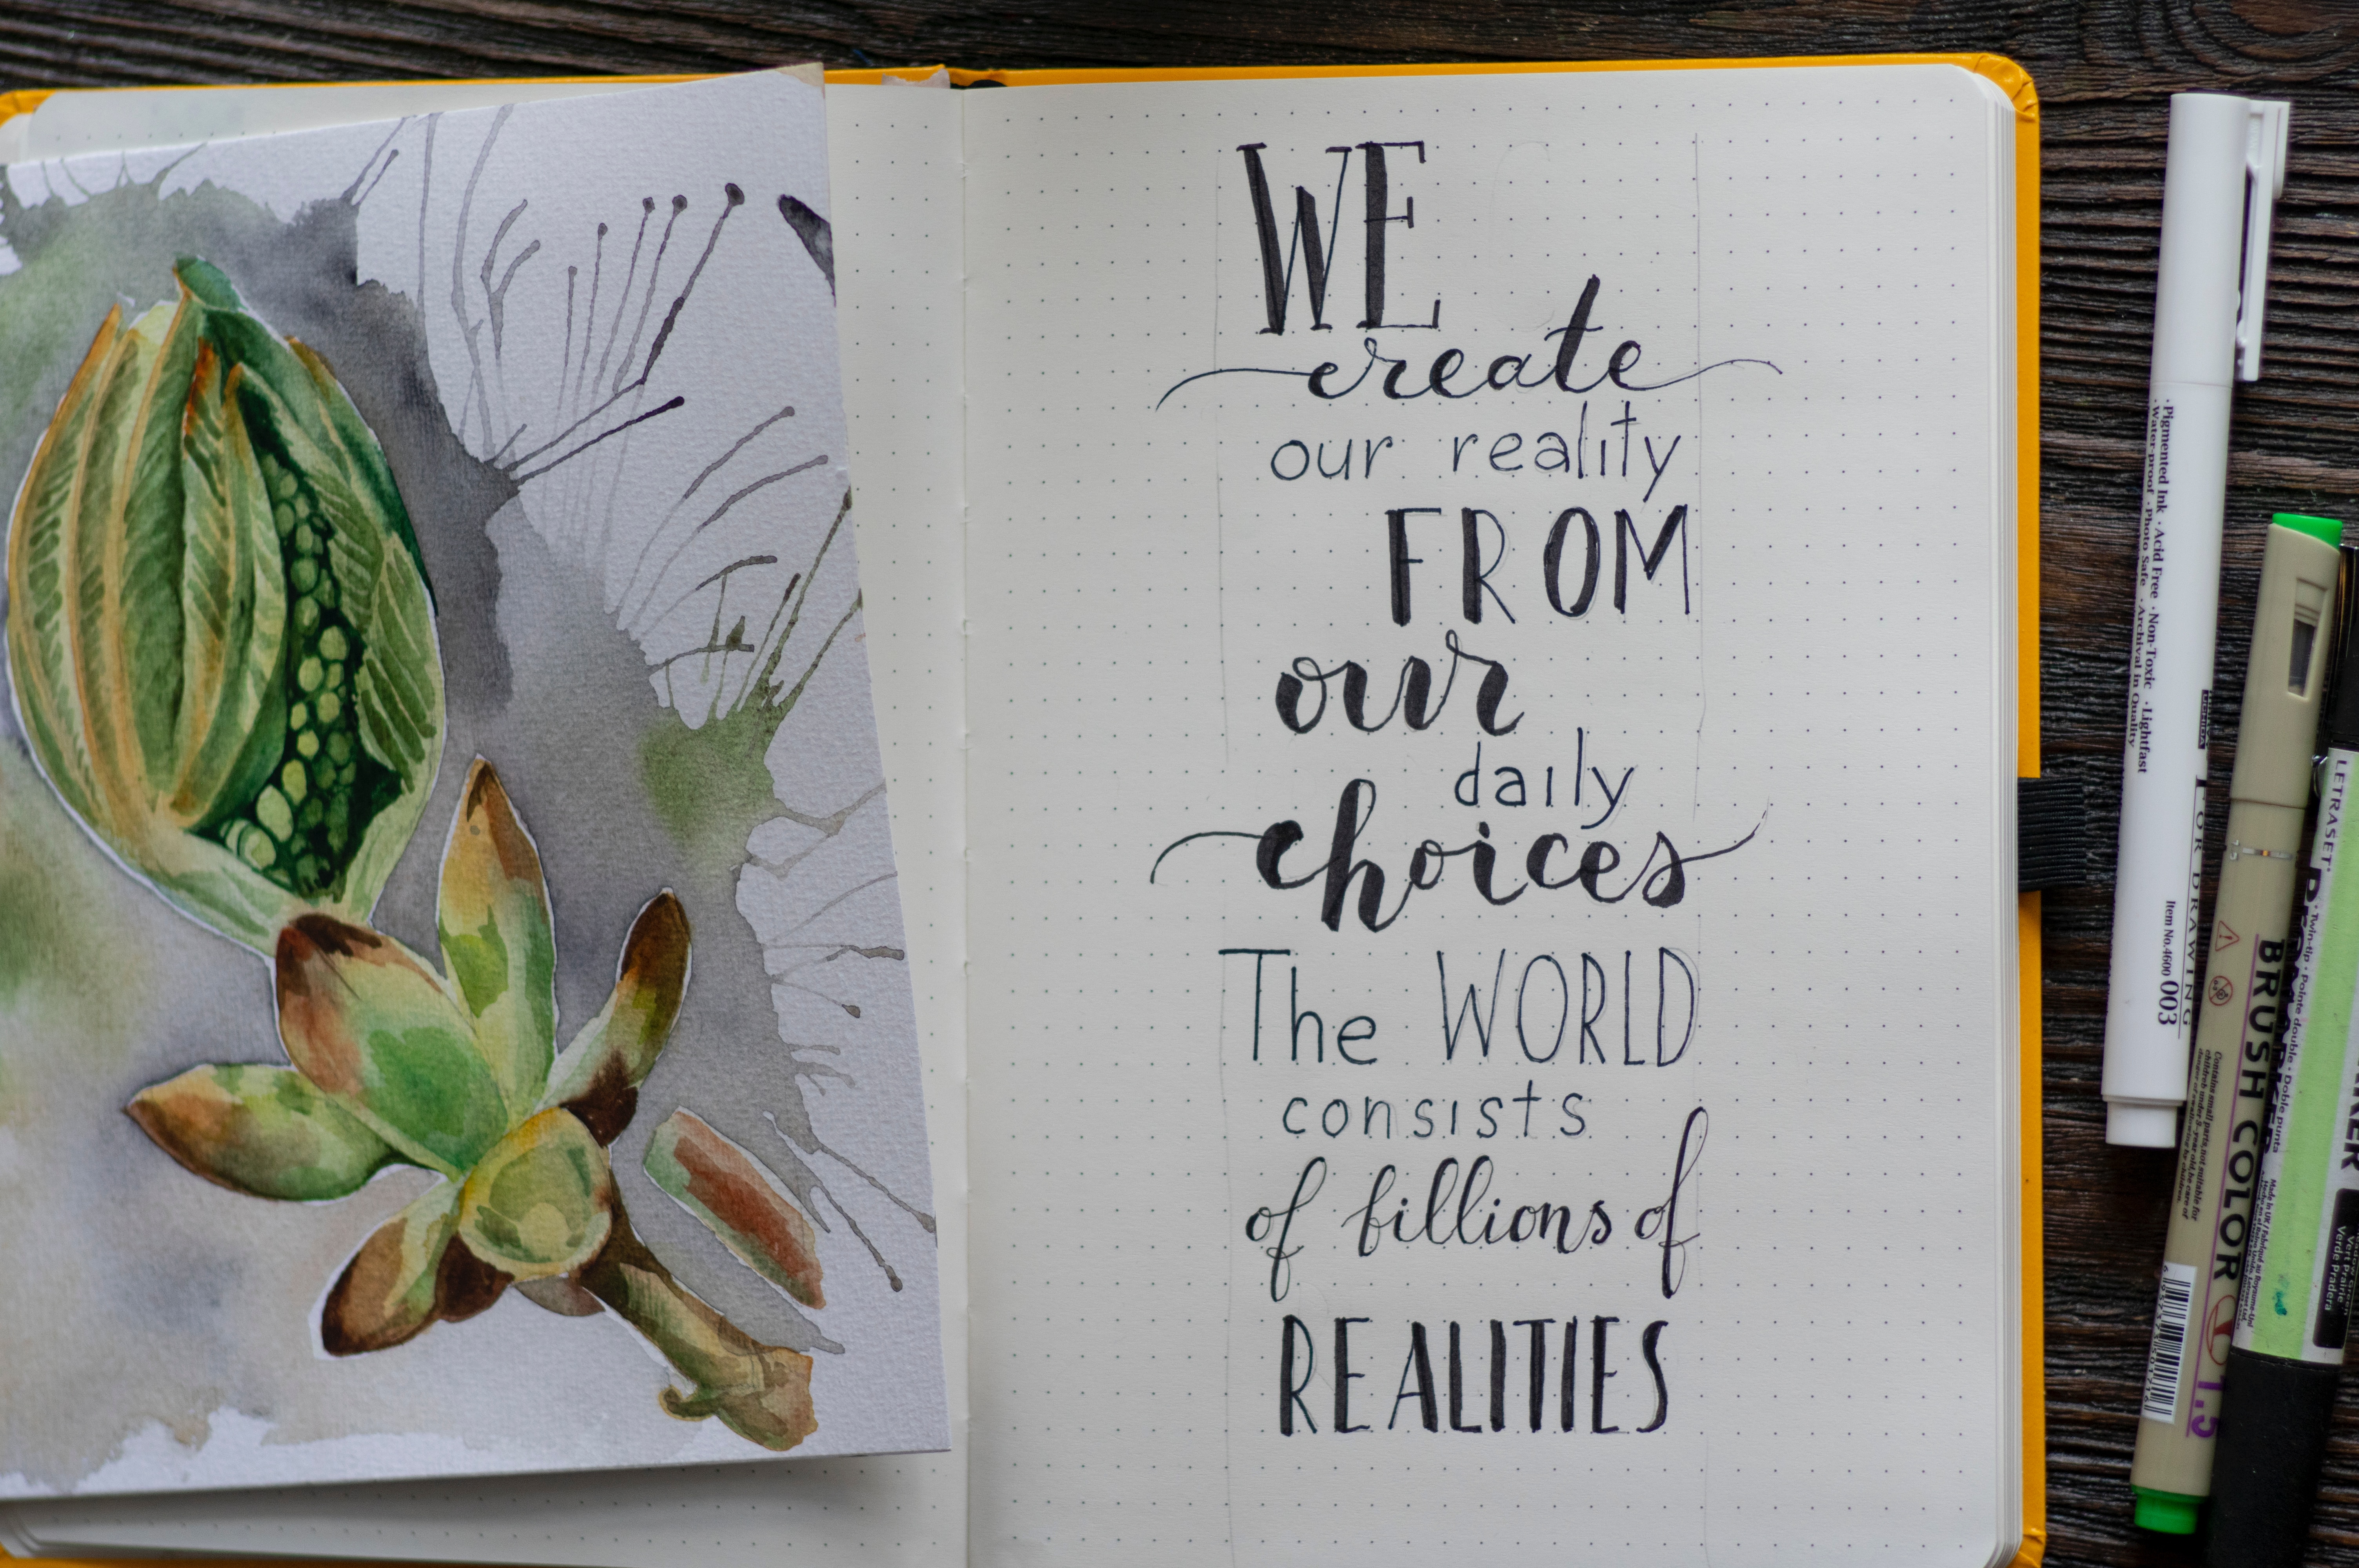 WE
create
our reality
FROM
our
daily
choices
The WORLD
consists
of billions of
REALITIES
·Pigmented Ink ·Acid Free ·Non-Toxic ·Lightfast
·Water-proof ·Photo Safe ·Archival in Quality
FOR DRAWING
Item No.4600 003
BRUSH COLOR
1.5
LETRASET
Twin-tip · pointe double · Doble punta
Vert Prairie
Verde Pradera